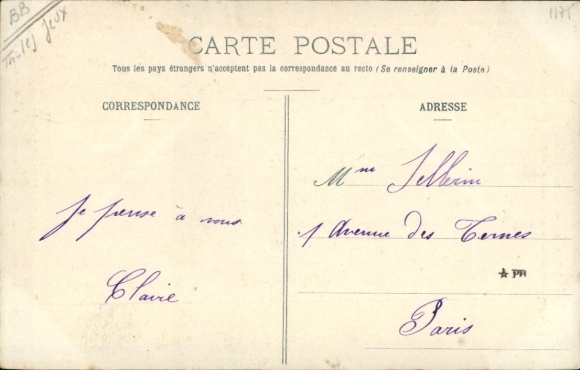 BB
Jeux
1175
CARTE POSTALE
Tous les pays étrangers n'acceptent pas la correspondance au recto (Se renseigner à la Poste)
CORRESPONDANCE
ADRESSE
Je pense à vous
Claire
Mme
1 Avenue des Ternes
Paris